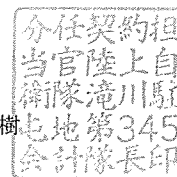 分任契約担
当官陸上自
衛隊滝川駐
屯地第345
会計隊長印
樹